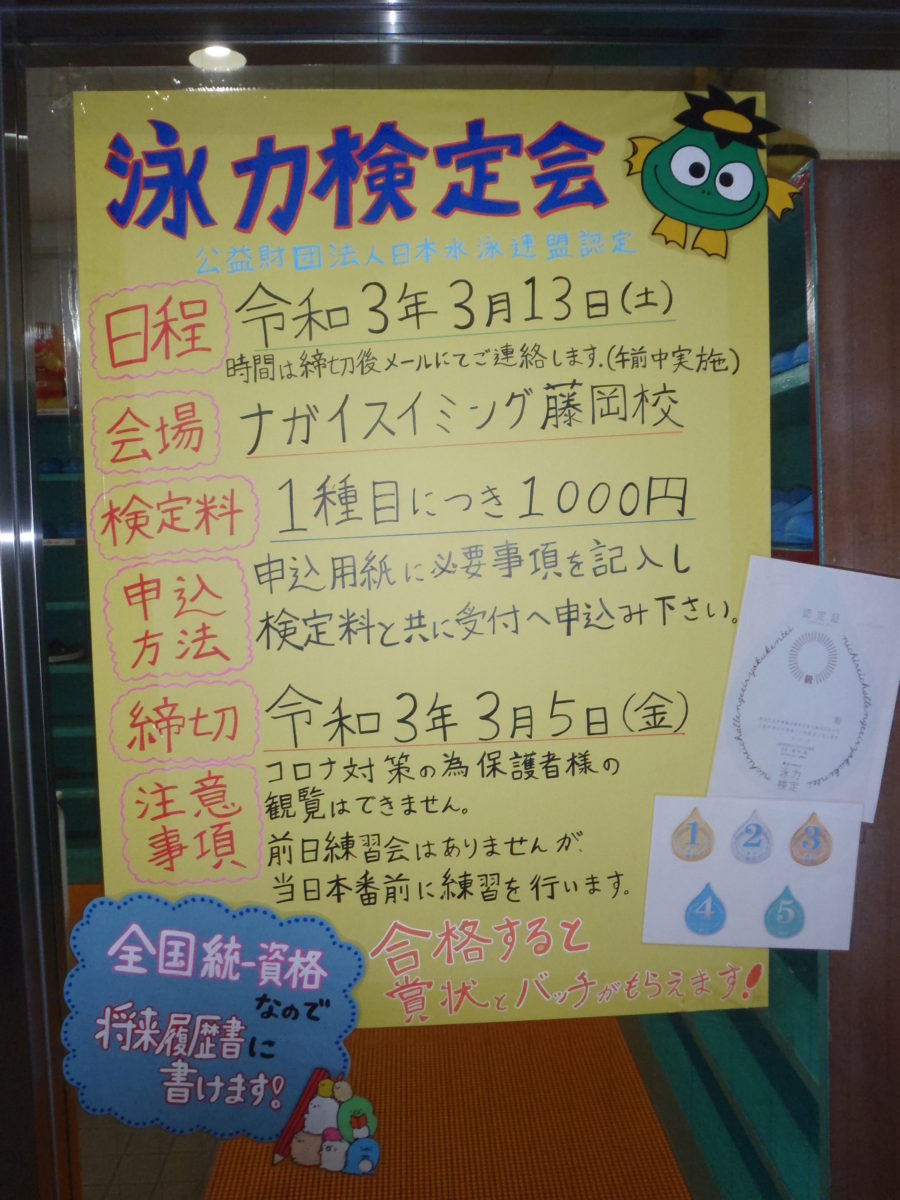 泳力検定会
公益財団法人日本水泳連盟認定
日程
令和3年3月13日(土)
時間は締切後メールにてご連絡します。(午前中実施)
会場
ナガイスイミング藤岡校
検定料
1種目につき1000円
申込
方法
申込用紙に必要事項を記入し
検定料と共に受付へ申込み下さい。
締切
令和3年3月5日(金)
注意
事項
コロナ対策の為保護者様の
観覧はできません。
前日練習会はありませんが、
当日本番前に練習を行います。
合格すると
賞状とバッチがもらえます!
全国統一資格
なので
将来履歴書に
書けます!
認定証
級
泳力
検定
1
2
3
4
5